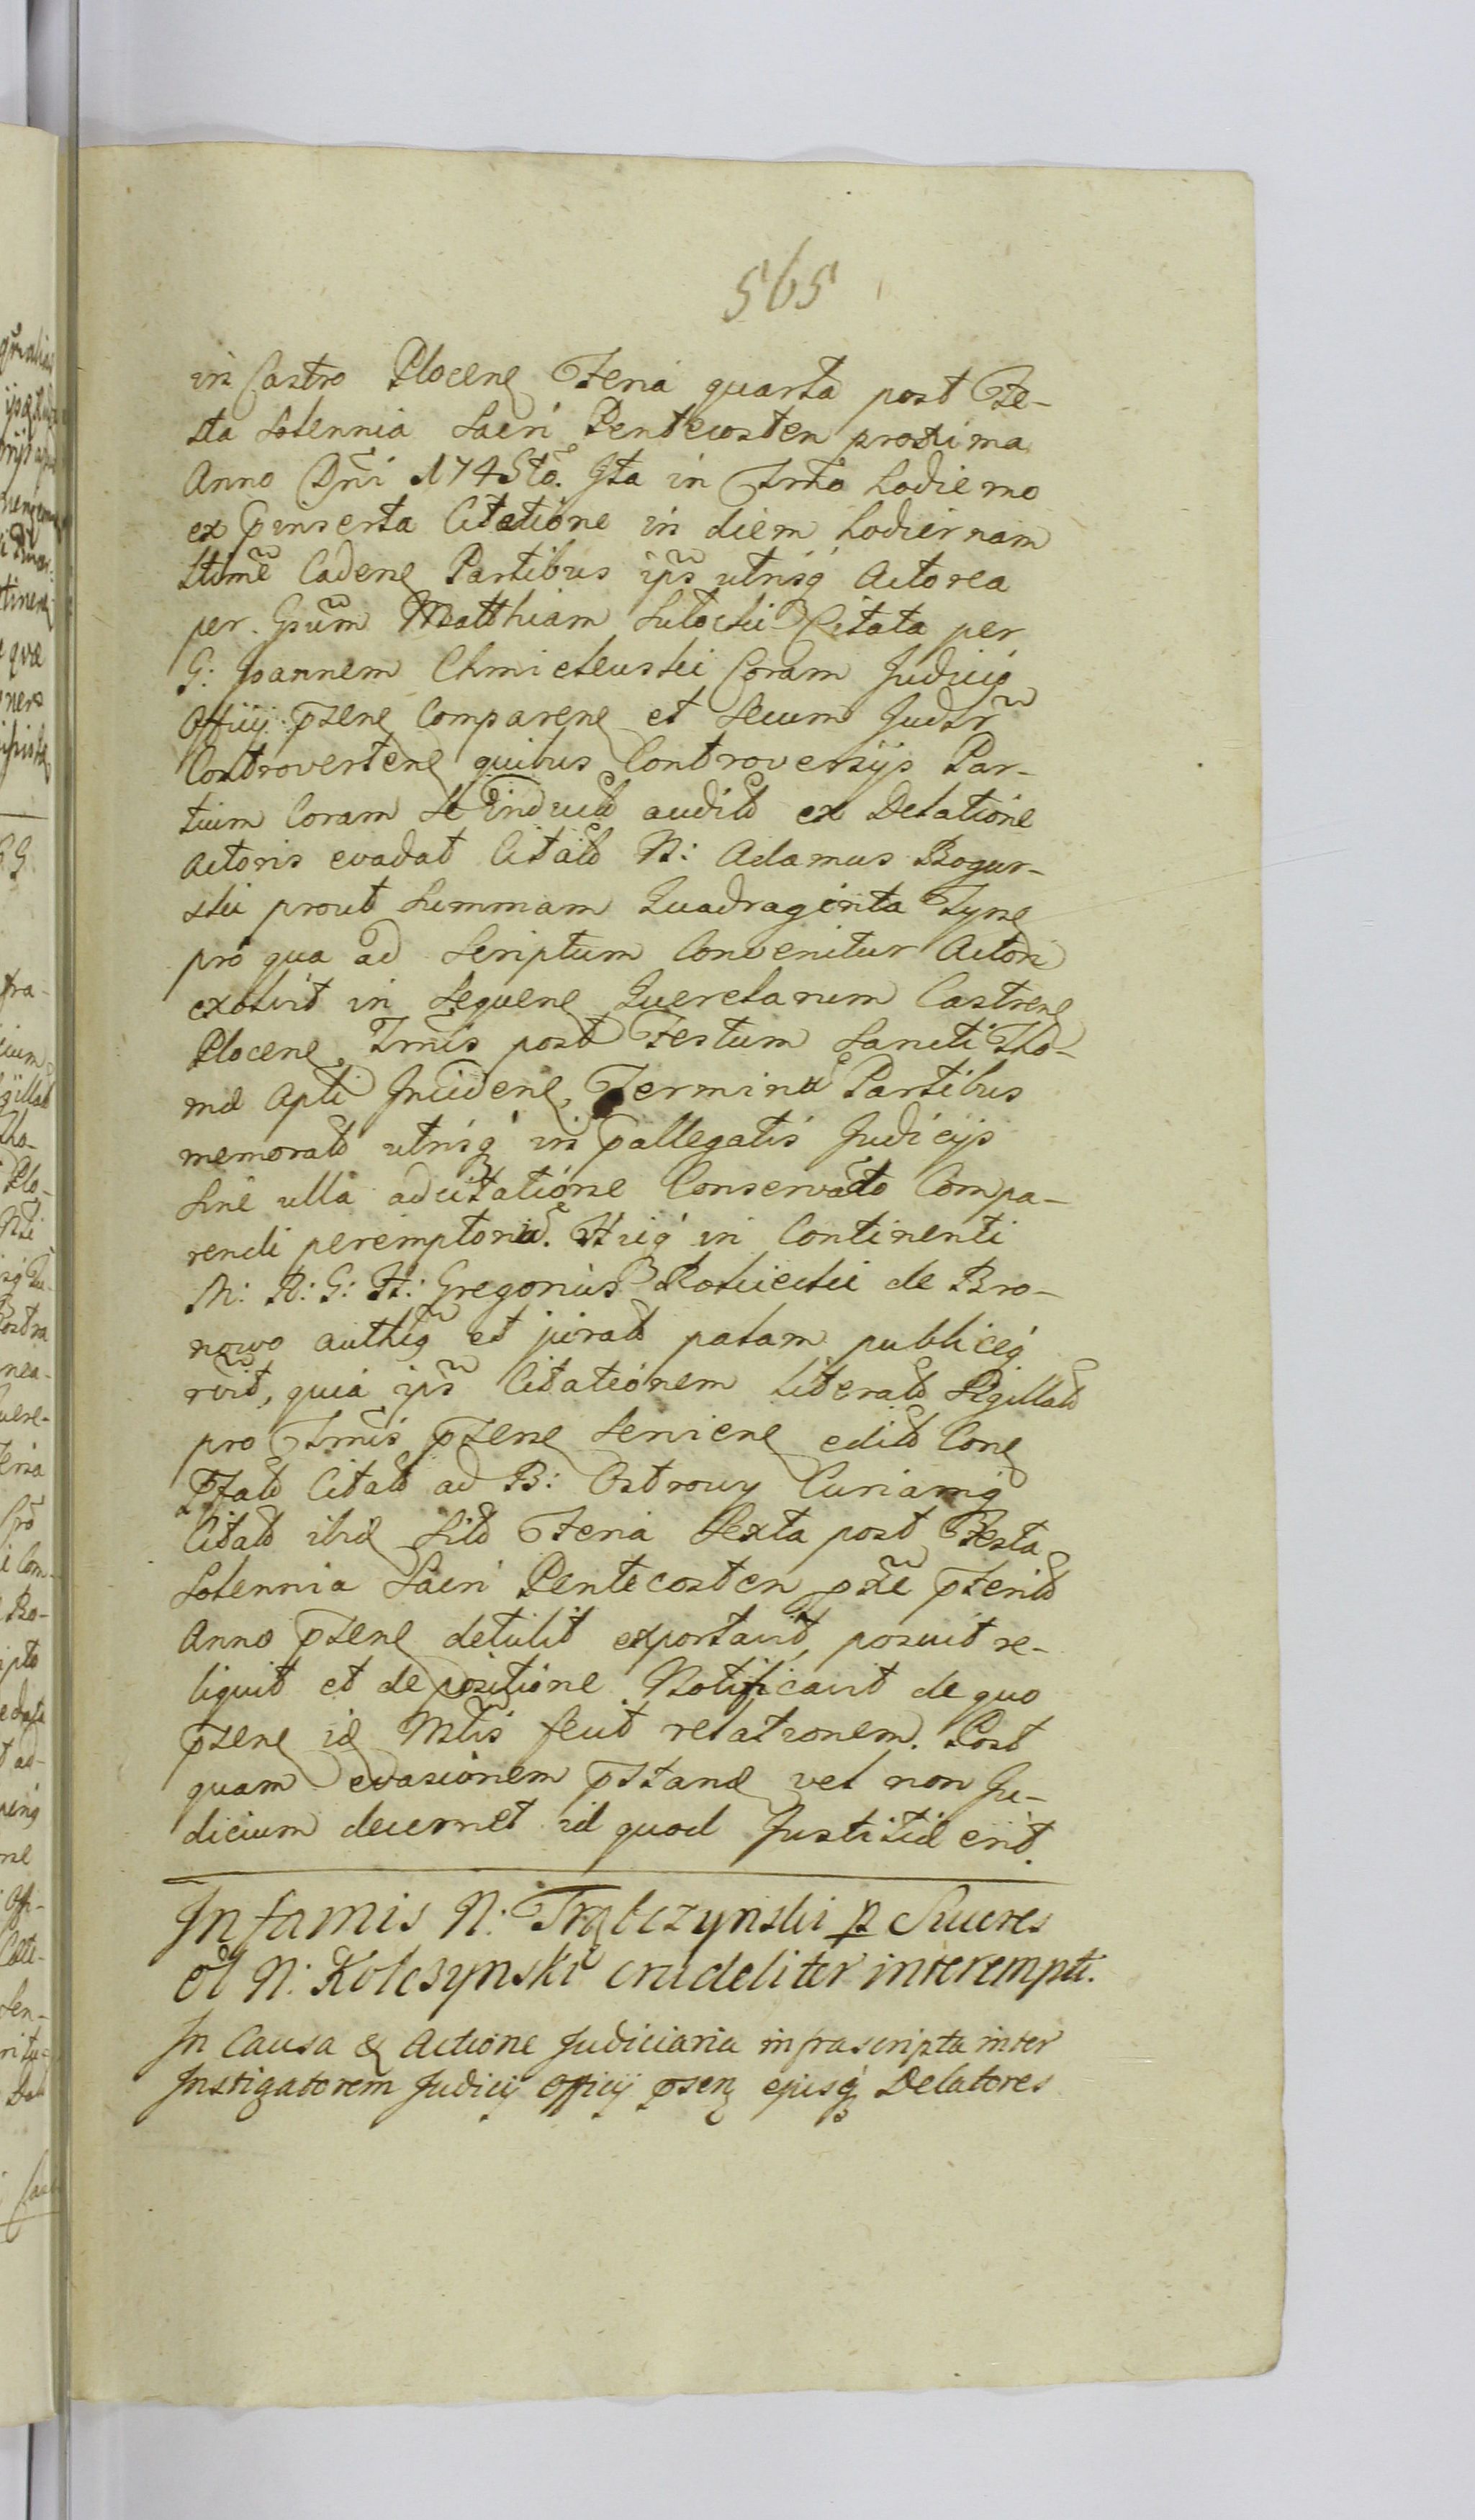 565
in Castro Plocen Feria quarta post Fe-
sta Solennia Sacri Pentecosten proxima
Anno Dñi 1745to. Ita in Tmo hodierno
ex p̄inserta Citatione in diem hodiernam
Ltime Caden Partibus ips utrisq Actorea
per Gsum Matthiam Citata per
G: Joannem Chmielewski Coram Judicio
Officij p̄sen Comparen et Secum Judr
Controverten quibus Controversijs Par-
tium Coram Se Induct audit ex Delatione
Actoris evadat Citat N: Adamus Bogur-
ski prout Summam Quadraginta Tynf
pro qua ad Scriptum Convenitur Actori
exolvit in Sequen Querelarum Castren
Plocen Tmis post Festum Sancti Tho-
mæ Apli Inciden, Termino Partibus
memorat utrisq in p̄allegatis Judicijs
Sine ulla adcitatione Conservato Compa-
rendi peremptorie. Hicq in Continenti
M: R: G: H: Gregorius de Bro-
nowo authen et jurat palam publiceq
rvit, quia ips Citationem literat Sigillat
pro Tmis p̄sen Servien edit Con
p̄fat Citat ad B: Ostrowy Curiamq
Citat ibid Sit Feria Sexta post Festa
Solennia Sacri Pentecosten p̄xe p̄terit
Anno p̄sen detulit exportavit, posuit re-
liquit et de positione Notificavit de quo
p̄sen id Mtis fecit relationem. Post
quam evasionem p̄stand vel non Ju-
dicium decernet id quod Justitiæ erit.
Infamis N: Trąbczynski p Succres
ol N: Kolczynski crudeliter interempti.
In Causa & Actione Judiciaria infrascripta inter
Instigatorem Judicij Officij p̄sen ejusq Delatores